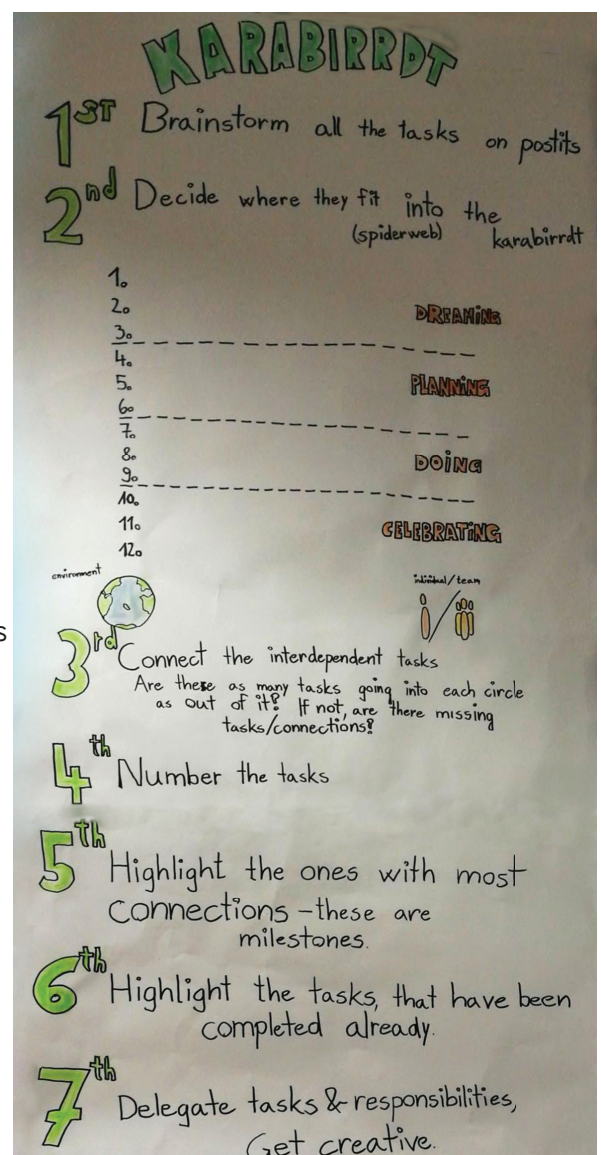 KARABIRRDT
1ST Brainstorm all the tasks on postits
2nd Decide where they fit into the
(spiderweb) karabirrdt
1.
2. DREAMING
3.
4.
5. PLANNING
6.
7.
8. DOING
9.
10.
11. CELEBRATING
12.
environment individual/team
3rd Connect the interdependent tasks
Are there as many tasks going into each circle
as out of it? If not, are there missing
tasks/connections?
4th Number the tasks
5th Highlight the ones with most
connections - these are
milestones.
6th Highlight the tasks, that have been
completed already.
7th Delegate tasks & responsibilities,
Get creative.
s